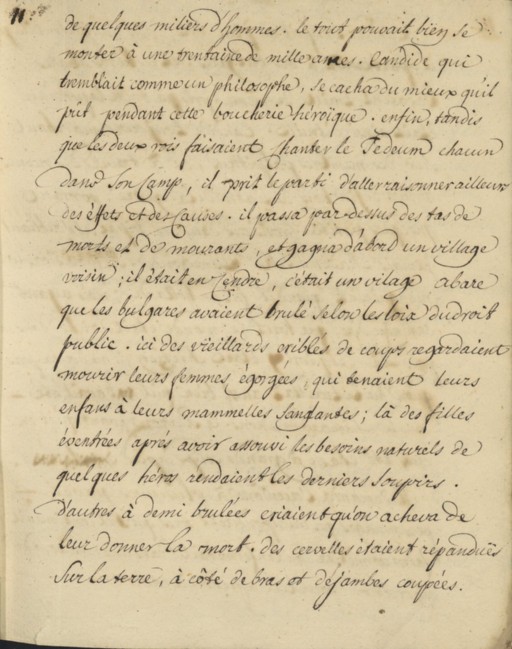 11.
de quelques miliers d'hommes. le tout pouvait bien se
monter à une trentaine de mille ames. Candide qui
tremblait comme un philosophe, se cacha du mieux qu'il
pût pendant cette boucherie héroïque. enfin, tandis
que les deux rois faisaient chanter le Tedeum chacun
dans son Camp, il prit le parti d'aller raisonner ailleurs
des éffets et des Causes. il passa par-dessus des tas de
morts et de mourants, et gagna d'abord un village
voisin; il était en Cendre, c'était un vilage abare
que les bulgares avaient brulé selon les loix du droit
public. ici des vieillards cribles de coups regardaient
mourir leurs femmes égorgées, qui tenaient leurs
enfans à leurs mammelles sanglantes; là des filles
éventrées aprés avoir assouvi les besoins naturels de
quelques héros rendaient les derniers soupirs.
D'autres à demi brulées criaient qu'on acheva de
leur donner la mort. des cervelles étaient répanduës
sur la terre, à côté de bras et de jambes coupées.